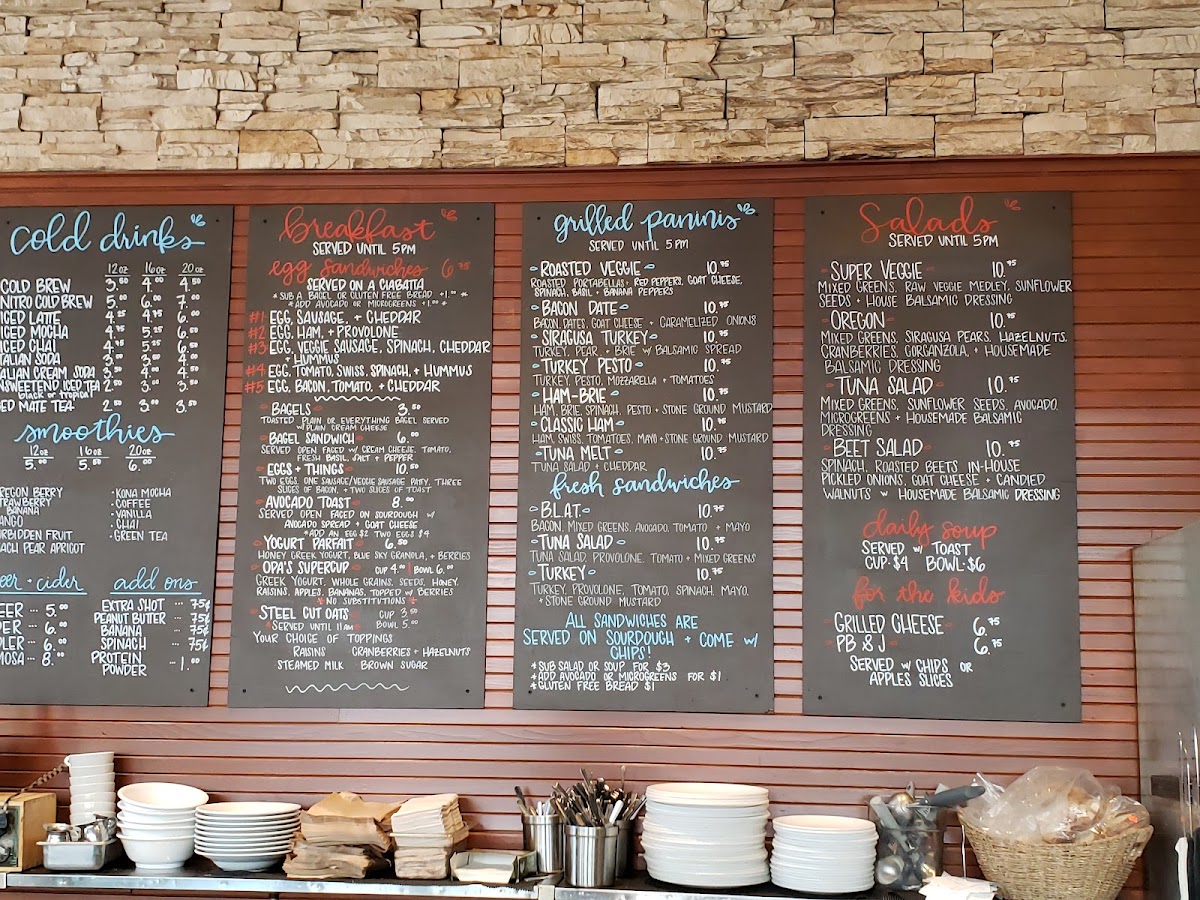 cold drinks
12oz 16oz 20oz
COLD BREW 3.50 4.00 4.50
NITRO COLD BREW 5.00 6.00 7.00
ICED LATTE 4.25 4.95 6.00
ICED MOCHA 4.75 5.25 6.50
ICED CHAI 4.75 5.25 6.50
TALIAN SODA 3.00 3.50 4.00
ALIAN CREAM SODA 3.50 4.00 4.50
NSWEETEND ICED TEA 2.50 3.00 3.50
black or tropical
ED MATE TEA 2.50 3.00 3.50
smoothies
12oz 16oz 20oz
5.00 5.50 6.00
REGON BERRY
TRAWBERRY
BANANA
ANGO
ORBIDDEN FRUIT
EACH PEAR APRICOT
• KONA MOCHA
• COFFEE
• VANILLA
• CHAI
• GREEN TEA
eer + cider
EER -- 5.00
PER -- 6.00
DLER -- 6.00
MOSA -- 8.00
add ons
EXTRA SHOT -- 75¢
PEANUT BUTTER -- 75¢
BANANA -- 75¢
SPINACH -- 75¢
PROTEIN
POWDER -- 1.00
breakfast
SERVED UNTIL 5PM
egg sandwiches 6.75
SERVED ON A CIABATTA
* SUB A BAGEL OR GLUTEN FREE BREAD +1.00 *
* ADD AVOCADO OR MICROGREENS +1.00 *
#1 EGG, SAUSAGE, + CHEDDAR
#2 EGG, HAM, + PROVOLONE
#3 EGG, VEGGIE SAUSAGE, SPINACH, CHEDDAR
+ HUMMUS
#4 EGG, TOMATO, SWISS, SPINACH, + HUMMUS
#5 EGG, BACON, TOMATO, + CHEDDAR
- BAGELS - 3.50
TOASTED PLAIN OR EVERYTHING BAGEL SERVED
W/ PLAIN CREAM CHEESE
- BAGEL SANDWICH - 6.00
SERVED OPEN FACED W/ CREAM CHEESE, TOMATO,
FRESH BASIL, SALT + PEPPER
- EGGS + THINGS - 10.50
TWO EGGS, ONE SAUSAGE/VEGGIE SAUSAGE PATTY, THREE
SLICES OF BACON, + TWO SLICES OF TOAST
- AVOCADO TOAST - 8.00
SERVED OPEN FACED ON SOURDOUGH W/
AVOCADO SPREAD + GOAT CHEESE
*ADD AN EGG $2 TWO EGGS $4
- YOGURT PARFAIT - 6.50
HONEY GREEK YOGURT, BLUE SKY GRANOLA, + BERRIES
- OPA'S SUPERCUP - CUP 4.00 | BOWL 6.00
GREEK YOGURT, WHOLE GRAINS, SEEDS, HONEY,
RAISINS, APPLES, BANANAS, TOPPED W/ BERRIES
* NO SUBSTITUTIONS *
- STEEL CUT OATS - CUP 3.50
* SERVED UNTIL 11AM BOWL 5.00
YOUR CHOICE OF TOPPINGS
RAISINS CRANBERRIES + HAZELNUTS
STEAMED MILK BROWN SUGAR
grilled paninis
SERVED UNTIL 5PM
- ROASTED VEGGIE - 10.95
ROASTED PORTABELLAS + RED PEPPERS, GOAT CHEESE,
SPINACH, BASIL + BANANA PEPPERS
- BACON DATE - 10.95
BACON, DATES, GOAT CHEESE + CARAMELIZED ONIONS
- SIRAGUSA TURKEY - 10.95
TURKEY, PEAR + BRIE W/ BALSAMIC SPREAD
- TURKEY PESTO - 10.95
TURKEY, PESTO, MOZZARELLA + TOMATOES
- HAM-BRIE - 10.95
HAM, BRIE, SPINACH, PESTO + STONE GROUND MUSTARD
- CLASSIC HAM - 10.95
HAM, SWISS, TOMATOES, MAYO + STONE GROUND MUSTARD
- TUNA MELT - 10.95
TUNA SALAD + CHEDDAR
fresh sandwiches
- B.L.A.T. - 10.95
BACON, MIXED GREENS, AVOCADO, TOMATO + MAYO
- TUNA SALAD - 10.95
TUNA SALAD, PROVOLONE, TOMATO + MIXED GREENS
- TURKEY - 10.95
TURKEY, PROVOLONE, TOMATO, SPINACH, MAYO,
+ STONE GROUND MUSTARD
ALL SANDWICHES ARE
SERVED ON SOURDOUGH + COME W/
CHIPS!
* SUB SALAD OR SOUP FOR $3
* ADD AVOCADO OR MICROGREENS FOR $1
* GLUTEN FREE BREAD $1
Salads
SERVED UNTIL 5PM
- SUPER VEGGIE - 10.95
MIXED GREENS, RAW VEGGIE MEDLEY, SUNFLOWER
SEEDS + HOUSE BALSAMIC DRESSING
- OREGON - 10.95
MIXED GREENS, SIRAGUSA PEARS, HAZELNUTS,
CRANBERRIES, GORGANZOLA, + HOUSEMADE
BALSAMIC DRESSING
- TUNA SALAD - 10.95
MIXED GREENS, SUNFLOWER SEEDS, AVOCADO,
MICROGREENS + HOUSEMADE BALSAMIC
DRESSING
- BEET SALAD - 10.95
SPINACH, ROASTED BEETS, IN-HOUSE
PICKLED ONIONS, GOAT CHEESE + CANDIED
WALNUTS W/ HOUSEMADE BALSAMIC DRESSING
daily soup
SERVED W/ TOAST
CUP-$4 BOWL-$6
for the kids
- GRILLED CHEESE - 6.75
- PB & J - 6.75
SERVED W/ CHIPS OR
APPLES SLICES